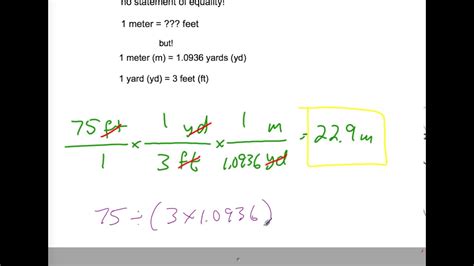 no statement of equality!
1 meter = ??? feet
but!
1 meter (m) = 1.0936 yards (yd)
1 yard (yd) = 3 feet (ft)
75 ft/1 × 1 yd/3 ft × 1 m/1.0936 yd = 22.9 m
75 ÷ (3 × 1.0936)